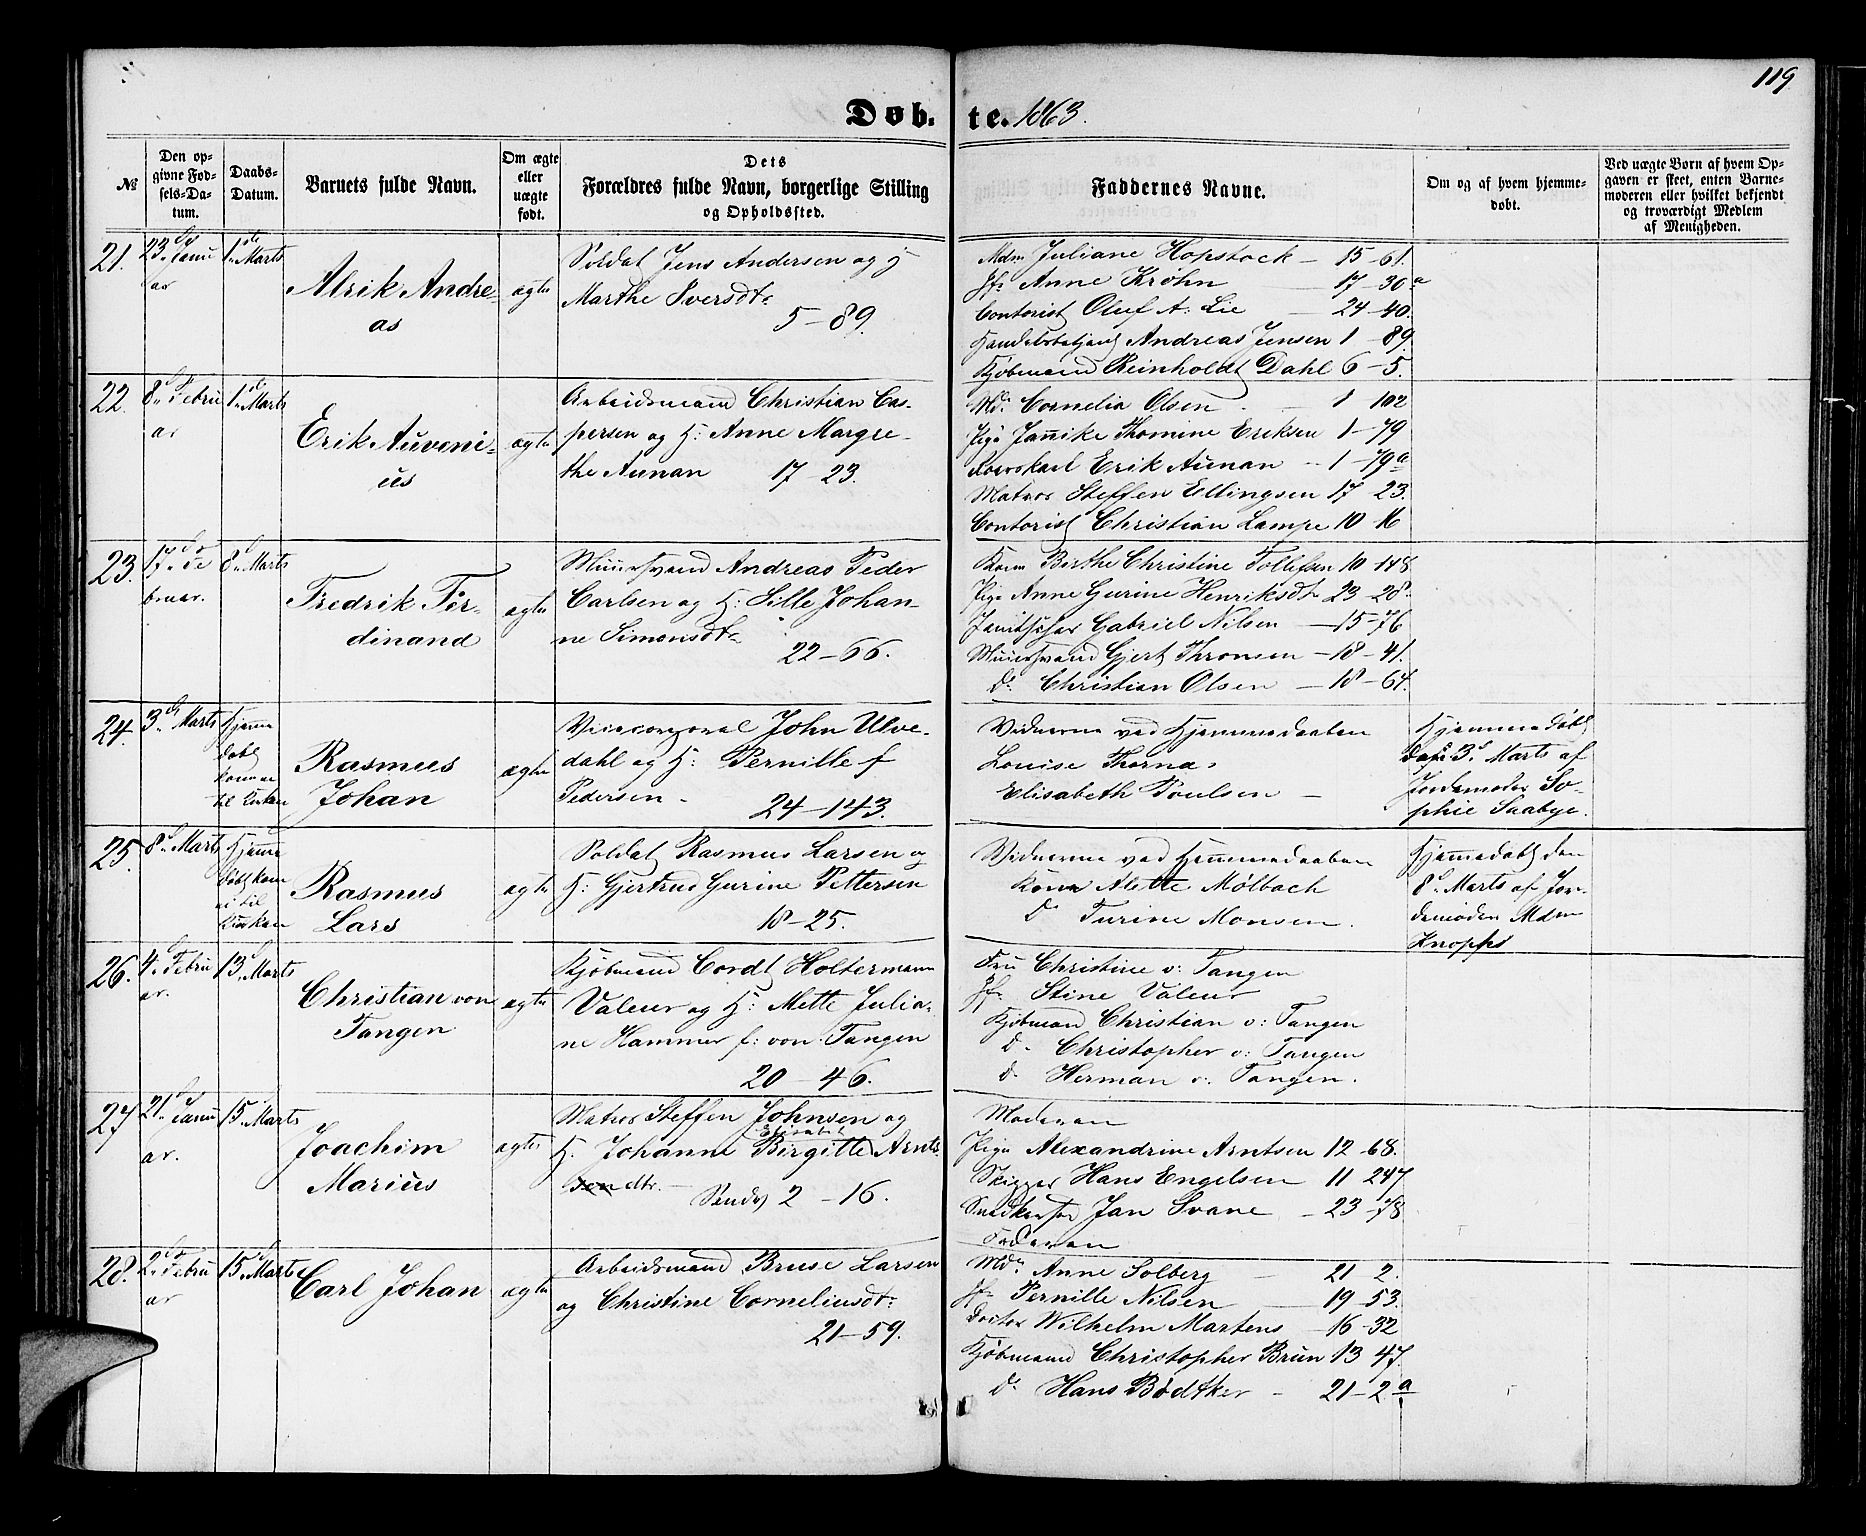 119
Døb. te. 1863.
№
Den op-
givne Fød-
sels-Da-
tum.
Daabs-
Datum.
Barnets fulde Navn.
Om ægte
eller
uægte
født.
Dets
Forældres fulde Navn, borgerlige Stilling
og Opholdssted.
Faddernes Navne.
Om og af hvem hjemme-
døbt.
Ved uægte Børn af hvem Op-
gaven er skeet, enten Barne-
moderen eller hvilket bekjendt
og troværdigt Medlem
af Menigheden.
21.
23de Janu
ar
1ste Marts
Alrik Andre-
as
ægte
Soldat Jens Andersen og H
Marthe Iversdtr
5-89.
Mdm Juliane Hopstock - 15-61.
Jfr Anne Krøhn 17-30a
Contorist Oluf A. Lie 24-40.
Handelsbetjent Andreas Jensen 1-89.
Kjøbmand Reinholdt Dahl 6-5.
22.
8de Febru
ar
1ste Marts
Erik Auveni-
us
ægte
Arbeidsmand Christian Cas-
persen og H: Anne Margre-
the Aunan 17-23.
Md. Cornelia Olsen 1 102
Pige Jannike Thomine Eriksen 1-79
Roerskarl Erik Aunan 1-79a
Matros Steffen Ellingsen 17-23.
Contorist Christian Lampe 10-16
23.
17de Fe
bruar.
8de Marts
Fredrik Fer-
dinand
ægte
Muursvend Andreas Peder
Carlsen og H: Sille Johan-
ne Simonsdtr
22-66.
Kone Birthe Christine Tollefsen 10-148
Pige Anne Gurine Henriksdtr 23-28.
Janitschar Gabriel Nilsen -15-76
Muursvend Gjert Thronsen -18-41.
Do Christian Olsen -18-64.
24.
3de Marts
Hjemme
døbt
kommer
til Kirken
Rasmus
Johan
ægte
Vicecorporal John Ulve-
dahl og H: Pernille f
Pedersen - 24-143.
Vidnerne ved Hjemmedaaben
Louise Thornæs
Elisabeth Poulsen -
Hjemmedøbt
den 3de Marts af
Jordemoder So-
phie Saabye.
25.
8de Marts
Hjemme
døbt kom
ei til
Kirken
Rasmus
Lars
ægte
Soldat Rasmus Larsen og
H: Gjertrud Gurine Pettersen
18-25.
Vidnerne ved Hjemmedaaben
Kone Alette Mølbach
Do Turine Monsen.
Hjemmedøbt den
8de Marts af Jor-
demoder Mdm
Knopps
26.
4de Febru
ar.
13de Marts
Christian von
Tangen
ægte
Kjøbmand Cordt Holtermann
Valeur og H: Mette Julia-
ne Hammer f: von Tangen
20-46.
Fru Christine v: Tangen
Jfr Stine Valeur
Kjøbmand Christian v: Tangen
Do Christopher v: Tangen
Do Herman v. Tangen.
27
21de Janu
ar.
15 Marts
Joachim
Marius
ægte
Matros Steffen Johnsen og
H. Johanne Elisabet Birgitte Arnts
sen dtr. - Sandv 2-16.
Moderen
Pige Alexandrine Arntsen 12-68.
Skipper Hans Engelsen 11 247
Snedkersv Jan Svane - 23-78
Faderen
28.
2de Febru
ar
15de Marts
Carl Johan
ægte
Arbeidsmand Bruse Larsen
og Christine Corneliusdtr:
21-59.
Mdm Anne Solberg 21 2.
Jfr Pernille Nilsen 19-53.
Doctor Wilhelm Martens 16-32
Kjøbmand Christopher Brun 13 47.
Do Hans Bødtker - 21-2a